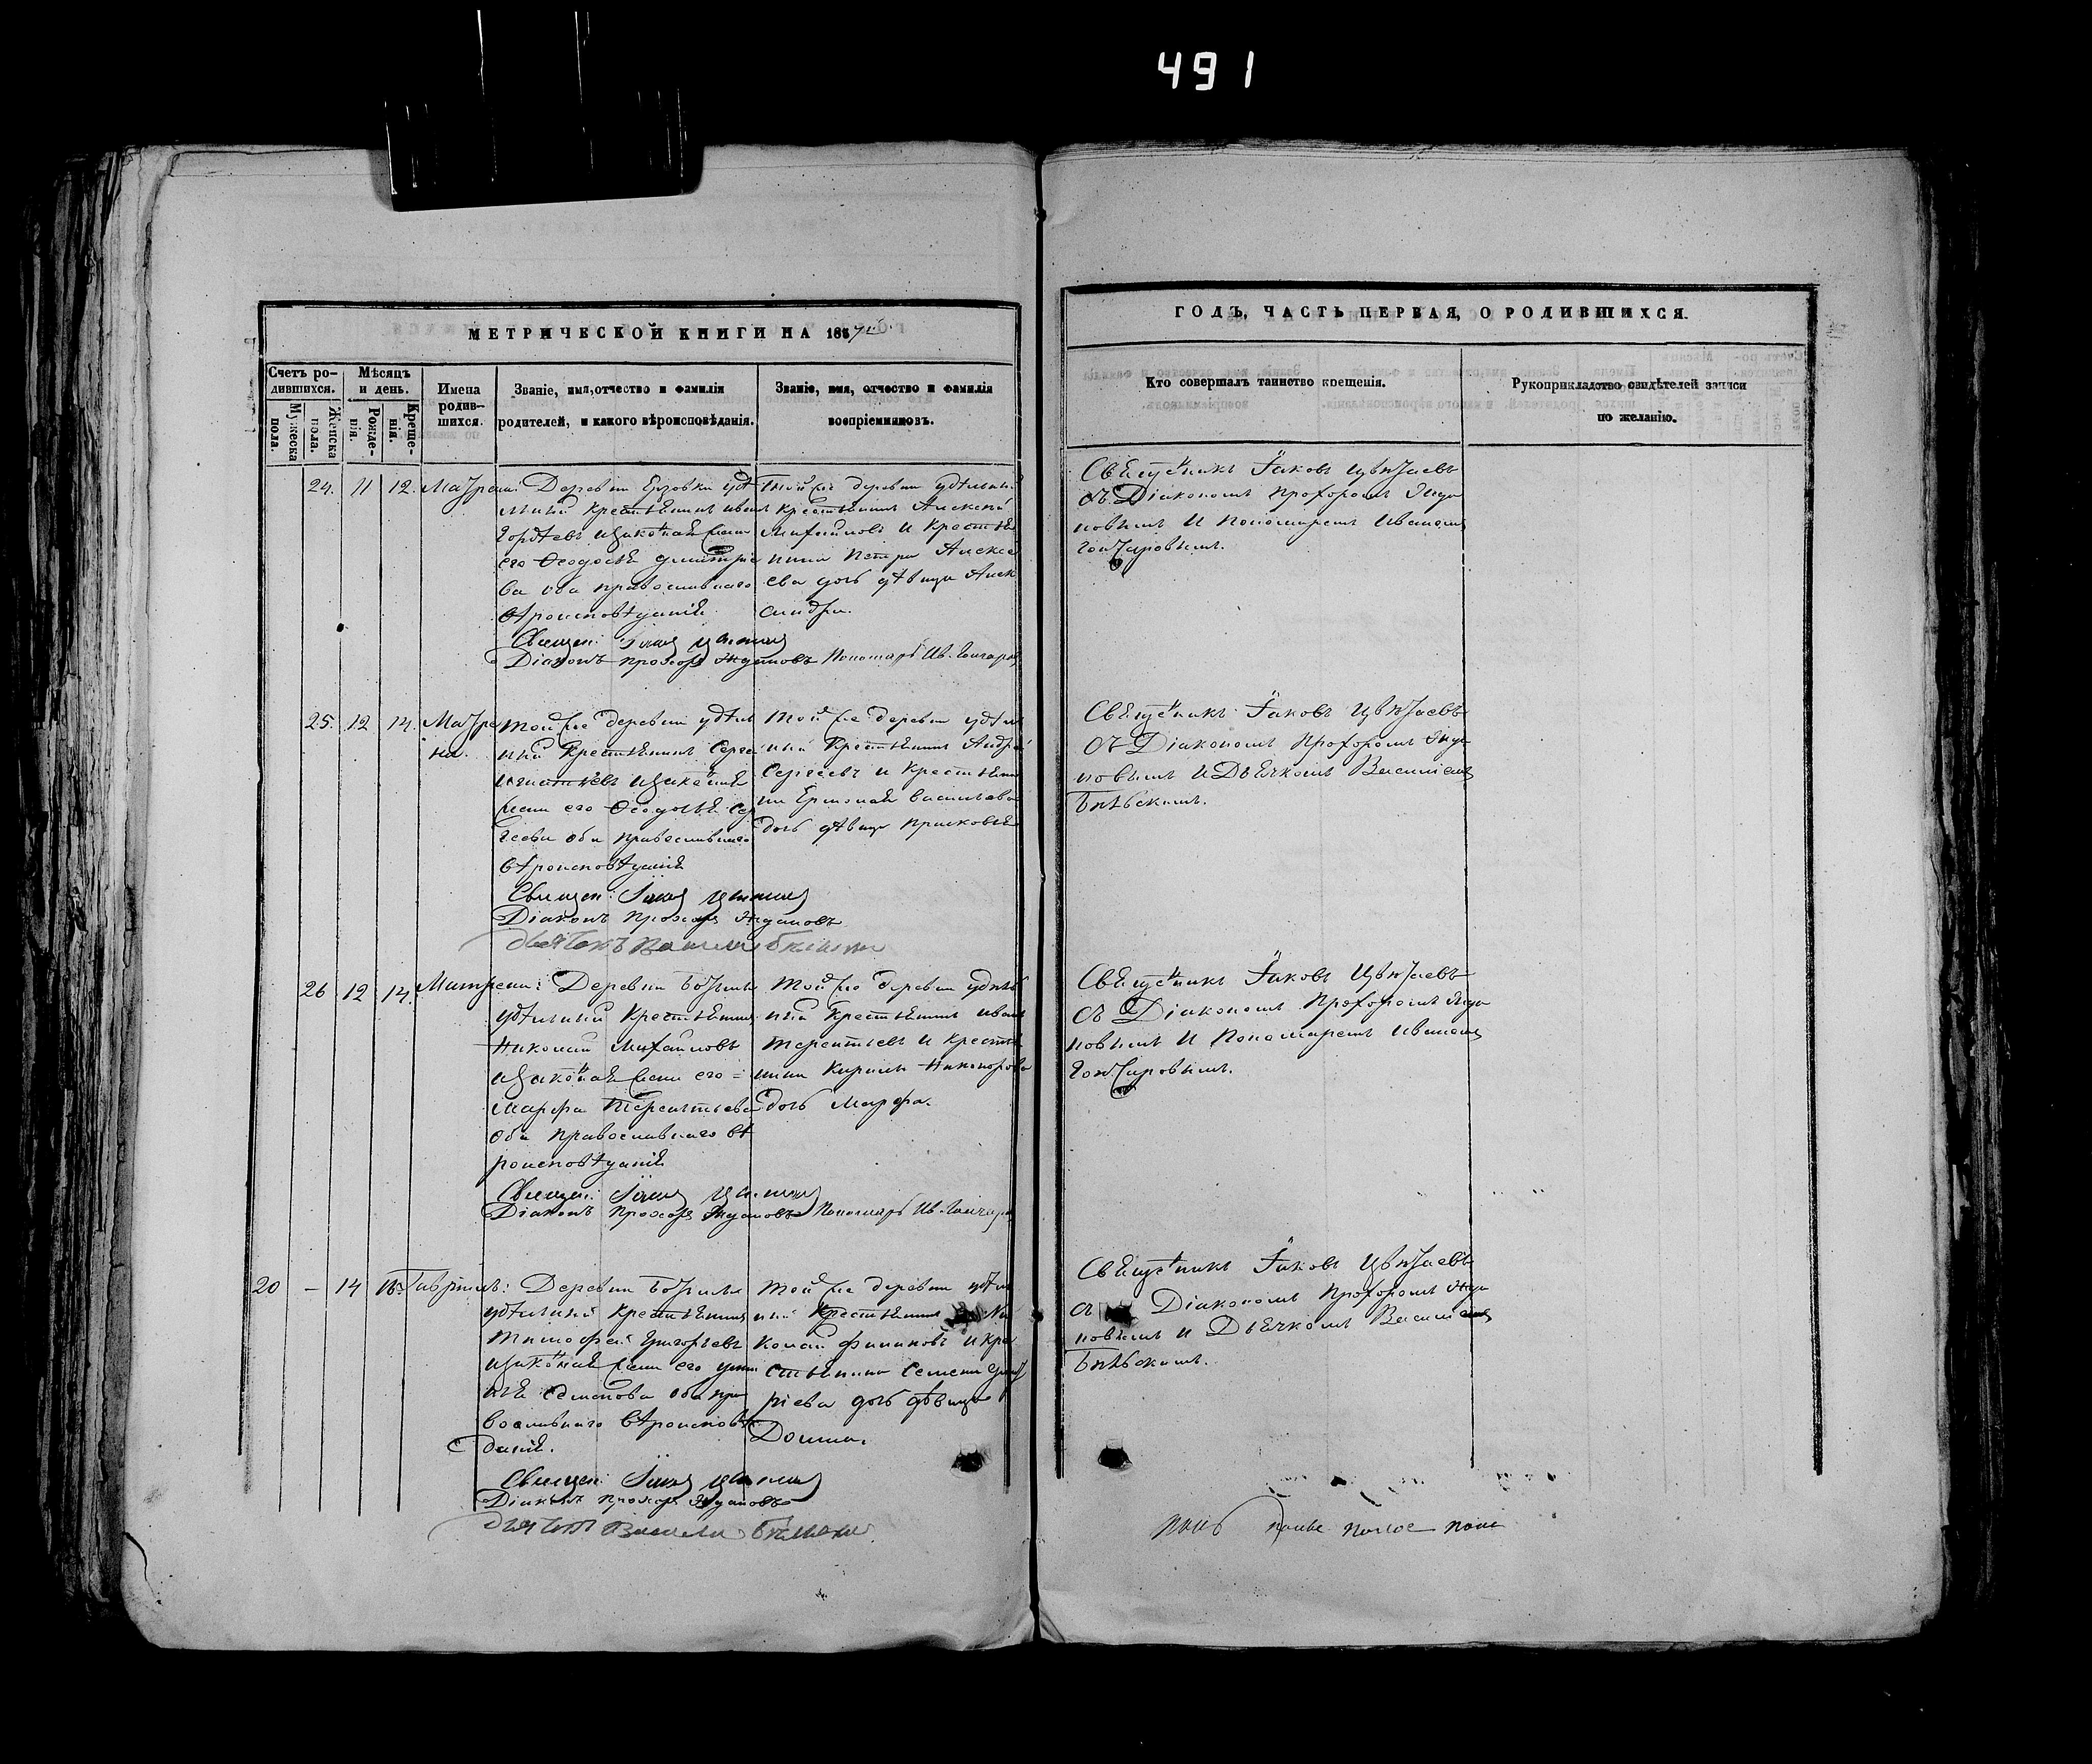 491
МЕТРИЧЕСКОЙ КНИГИ НА 1857й
ГОДЪ, ЧАСТЬ ПЕРВАЯ, О РОДИВШИХСЯ.
Счетъ ро-
дившихся.
Мужеска
пола.
Женска
пола.
Мѣсяцъ
и день.
Рожде-
нія.
Креще-
нія.
Имена
родив-
шихся.
Званіе, имя, отчество и фамилія
родителей, и какого вѣроисповѣданія.
Званіе, имя, отчество и фамилія
воспріемниковъ.
Кто совершалъ таинство крещенія.
Рукоприкладство свидѣтелей записи
по желанію.
24. 11 12.
Матрена:
Деревни удѣ
льный крестьянинъ Иванъ
Гордѣевъ изаконная жена
его Ѳеодосья Дмитріе
ва оба православнаго
вѣроисповѣданія.
Священ:
Діаконъ Прохоръ Ждановъ Пономарь Ив. Гончаровъ
той же деревни удѣльный
крестьянинъ Алексѣй
Михайловъ и крестья
нина Петра Алексе
ева дочь дѣвица Алек
сандра.
Священникъ Іаковъ Цвѣтаевъ
съ Діакономъ Прохоромъ Жда
новымъ и Пономаремъ Иваномъ
Гончаровымъ.
25. 12 14.
Матре
на.
той же деревни удѣль
ный крестьянинъ Сергей
Игнатьевъ изаконная
жена его Ѳеодосья Сер
геева оба православнаго
вѣроисповѣданія
Священ:
Діаконъ Прохоръ Ждановъ
дьячокъ Василий
той же деревни удѣль
ный крестьянинъ Андрей
Сергѣевъ и крестьяни
на Ермолая Васильева
дочь дѣвица Прасковья
Священникъ Іаковъ Цвѣтаевъ
съ Діакономъ Прохоромъ Жда
новымъ и Дьячкомъ Василіемъ
26 12 14.
Матрена:
Деревни
удѣльный крестьянинъ
Николай Михайловъ
изаконная жена его =
Марфа Терентьева
оба православнаго вѣ
роисповѣданія
Священ:
Діаконъ Прохоръ Ждановъ Пономарь Ив. Гончаровъ
той же деревни удѣль
ный крестьянинъ Иванъ
Терентьевъ и крестья
нина Кирилы Никифорова
дочь Марфа.
Священникъ Іаковъ Цвѣтаевъ
съ Діакономъ Прохоромъ Жда
новымъ и Пономаремъ Иваномъ
Гончаровымъ.
20 – 14 16.
Гавріилъ:
Деревни
удѣльный крестьянинъ
Тимофей Григорьевъ
изаконная жена его
Семенова оба пра
вославнаго вѣроисповѣ
данія.
Священ:
Діаконъ Прохоръ Ждановъ
дьячокъ Василий
той же деревни удѣль
ный крестьянинъ Ни
колай Филиповъ и кре
стьянина Семена
дочь дѣвица
Домна.
Священникъ Іаковъ Цвѣтаевъ
съ Діакономъ Прохоромъ Жда
новымъ и Дьячкомъ Василіемъ